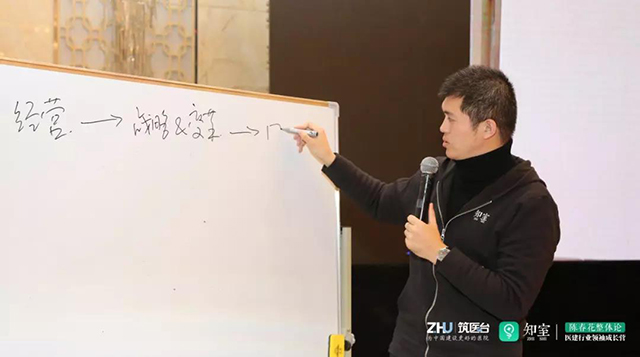 经营. → 战略&变革 →
知室
ZHU 筑医台
为中国建设更好的医院
知室
陈春花整体论
医建行业领袖成长营